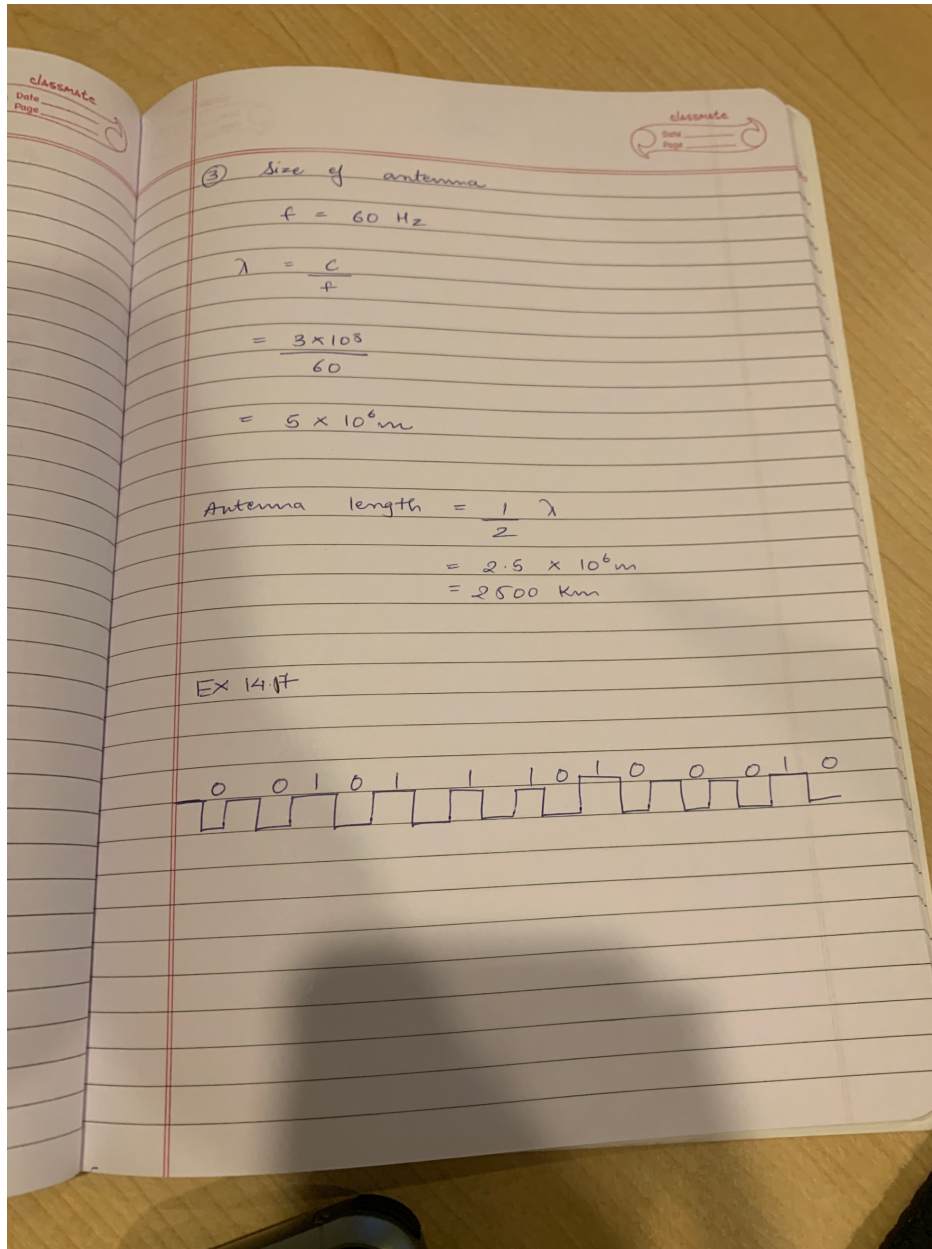 classmate
Date
Page
classmate
Date
Page
③ Size of antenna
f = 60 Hz
λ = c / f
= 3 × 10⁸ / 60
= 5 × 10⁶ m
Antenna length = 1/2 λ
= 2.5 × 10⁶ m
= 2500 km
EX 14.17
0 0 1 0 1 1 1 0 1 0 0 0 1 0